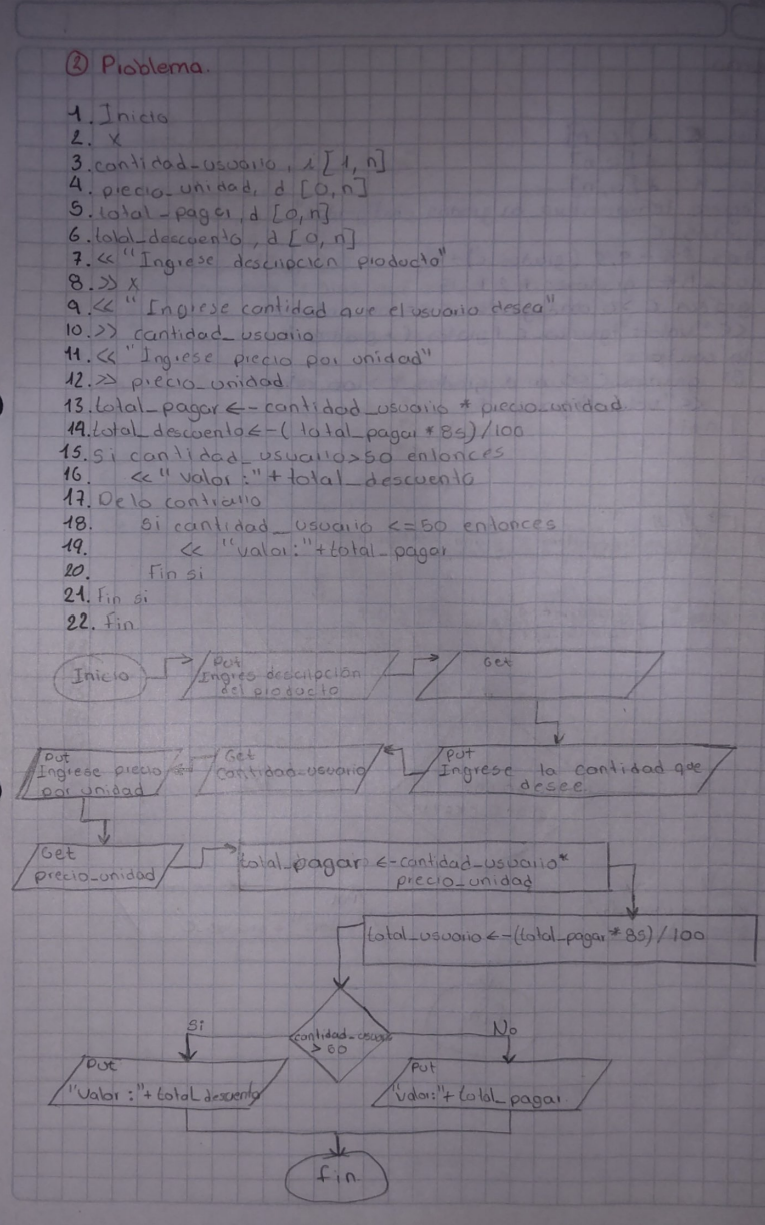 ② Problema.
1. Inicio
2. x
3. cantidad_usuario, i [1, n]
4. precio_unidad, d [0, n]
5. total_pagar, d [0, n]
6. total_descuento, d [0, n]
7. << "Ingrese descripción producto"
8. >> x
9. << "Ingrese cantidad que el usuario desea"
10. >> cantidad_usuario
11. << "Ingrese precio por unidad"
12. >> precio_unidad
13. total_pagar <- cantidad_usuario * precio_unidad
14. total_descuento <- (total_pagar * 85) / 100
15. Si cantidad_usuario > 50 entonces
16. << "valor:" + total_descuento
17. De lo contrario
18. Si cantidad_usuario <= 50 entonces
19. << "valor:" + total_pagar
20. Fin si
21. Fin si
22. fin
Inicio
Put
Ingres descripción
del producto
Get
Put
Ingrese precio
por unidad
Get
cantidad_usuario
Put
Ingrese la cantidad que
desee
Get
precio_unidad
total_pagar <- cantidad_usuario *
precio_unidad
total_usuario <- (total_pagar * 85) / 100
Si
cantidad_usuar
> 50
No
Put
"Valor:" + total descuento
Put
"valor:" + total_pagar
fin